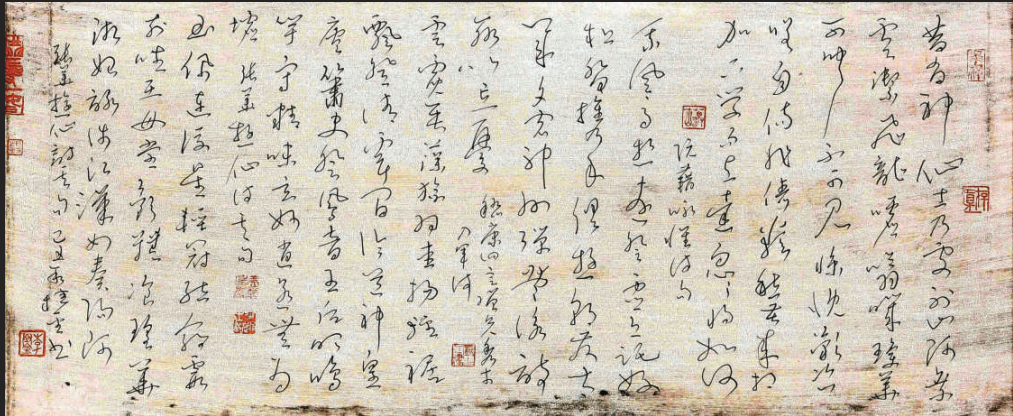 昔有神仙士乃處射山阿乘
雲禦飛龍噓噏嘰瓊華
可聞不可見慷慨歎咨
嗟自傷非儔類愁苦來相
加下學而上達忽忽將如何
阮籍詠懷詩句
乘風高逝遠登靈丘託好
松喬攜手俱遊朝發太
華夕宿神州彈琴詠詩
聊以忘憂
嵇康四言贈兄秀才
入軍詩
雲霓垂藻旒羽袿揚輕裾
飄登清雲間論道神皇
廬簫史登鳳音王后吹鳴
竽守精味玄妙逍遙無為
墟 張華遊仙詩句
玉佩連浮星輕冠結朝霞
列坐王母堂艷體飡瑤華
湘妃詠涉江漢女奏陽阿
張華遊仙詩句己丑書